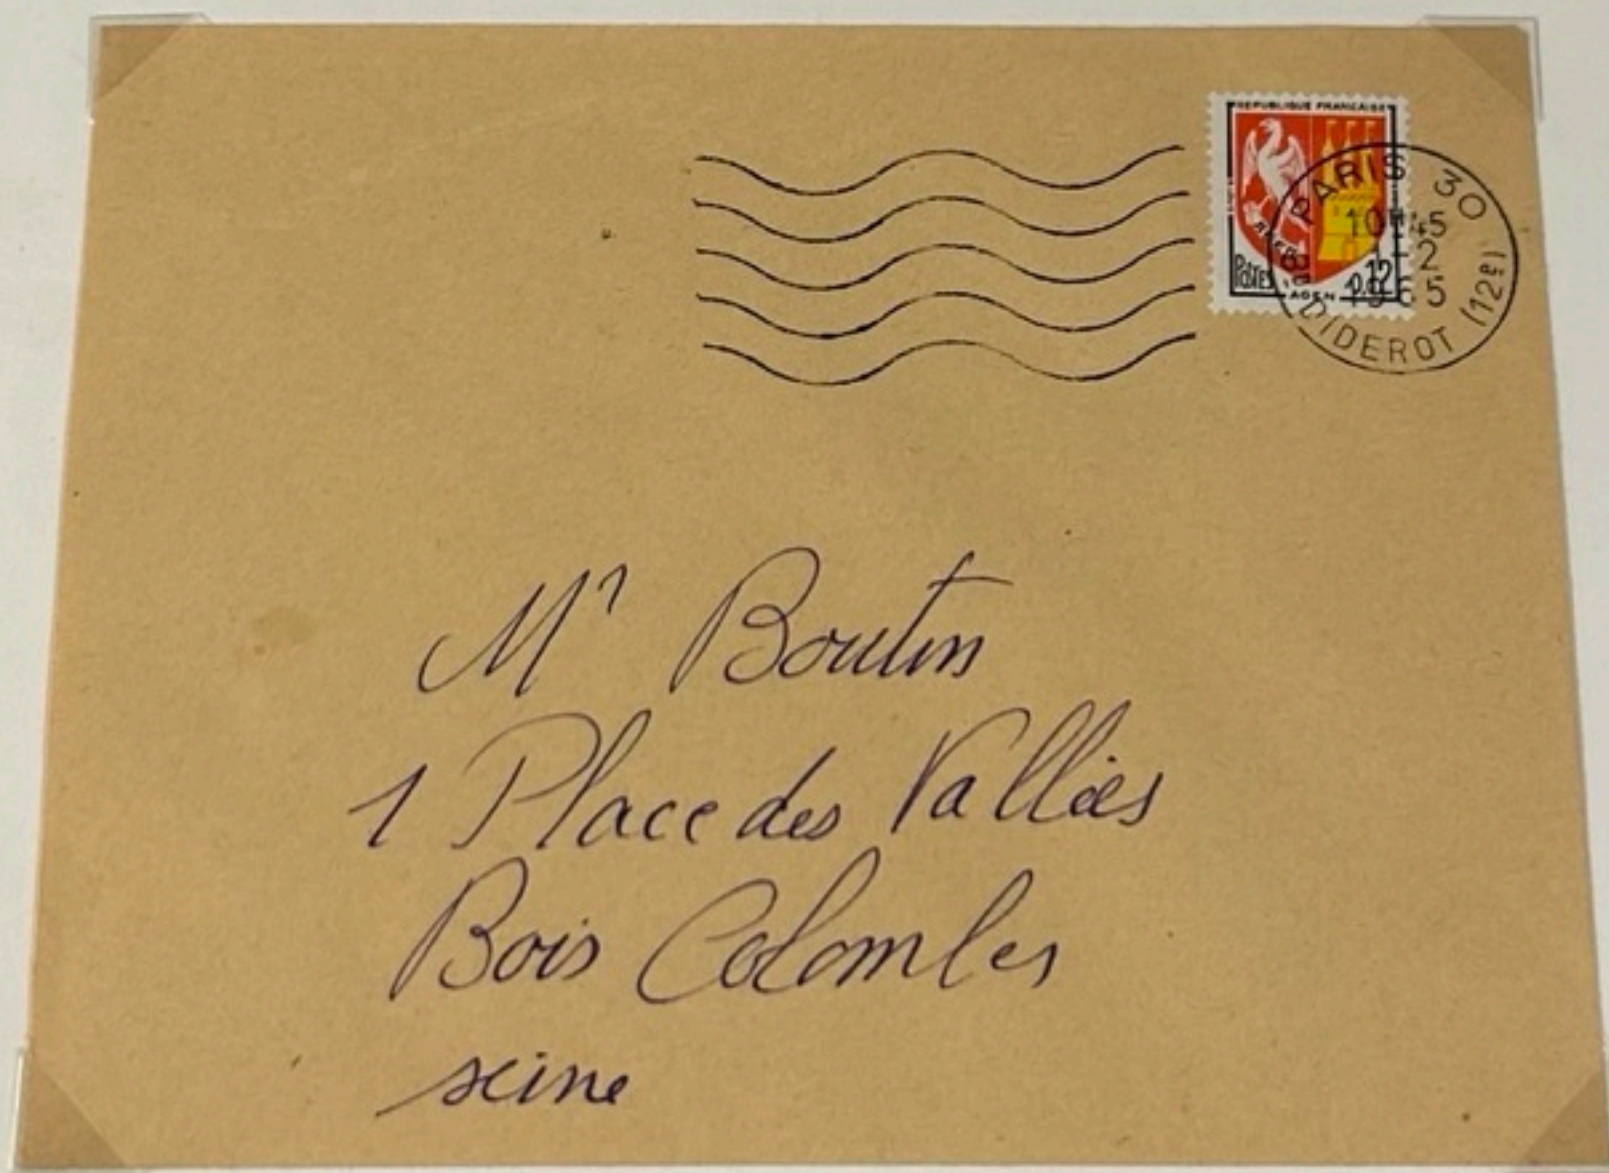 REPUBLIQUE FRANCAISE
POSTES 0,12
AGEN
PARIS 30
10H45
1-2
1965
DIDEROT (12e)
Mr Boutin
1 Place des Vallées
Bois Colombes
seine